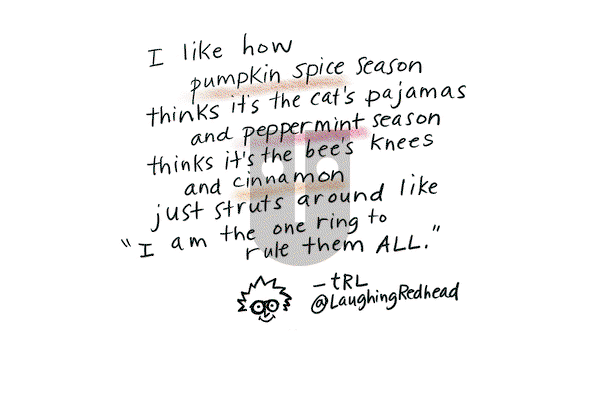 I like how
pumpkin spice season
thinks it's the cat's pajamas
and peppermint season
thinks it's the bee's knees
and cinnamon
just struts around like
"I am the one ring to
rule them ALL."
–tRL
@LaughingRedhead